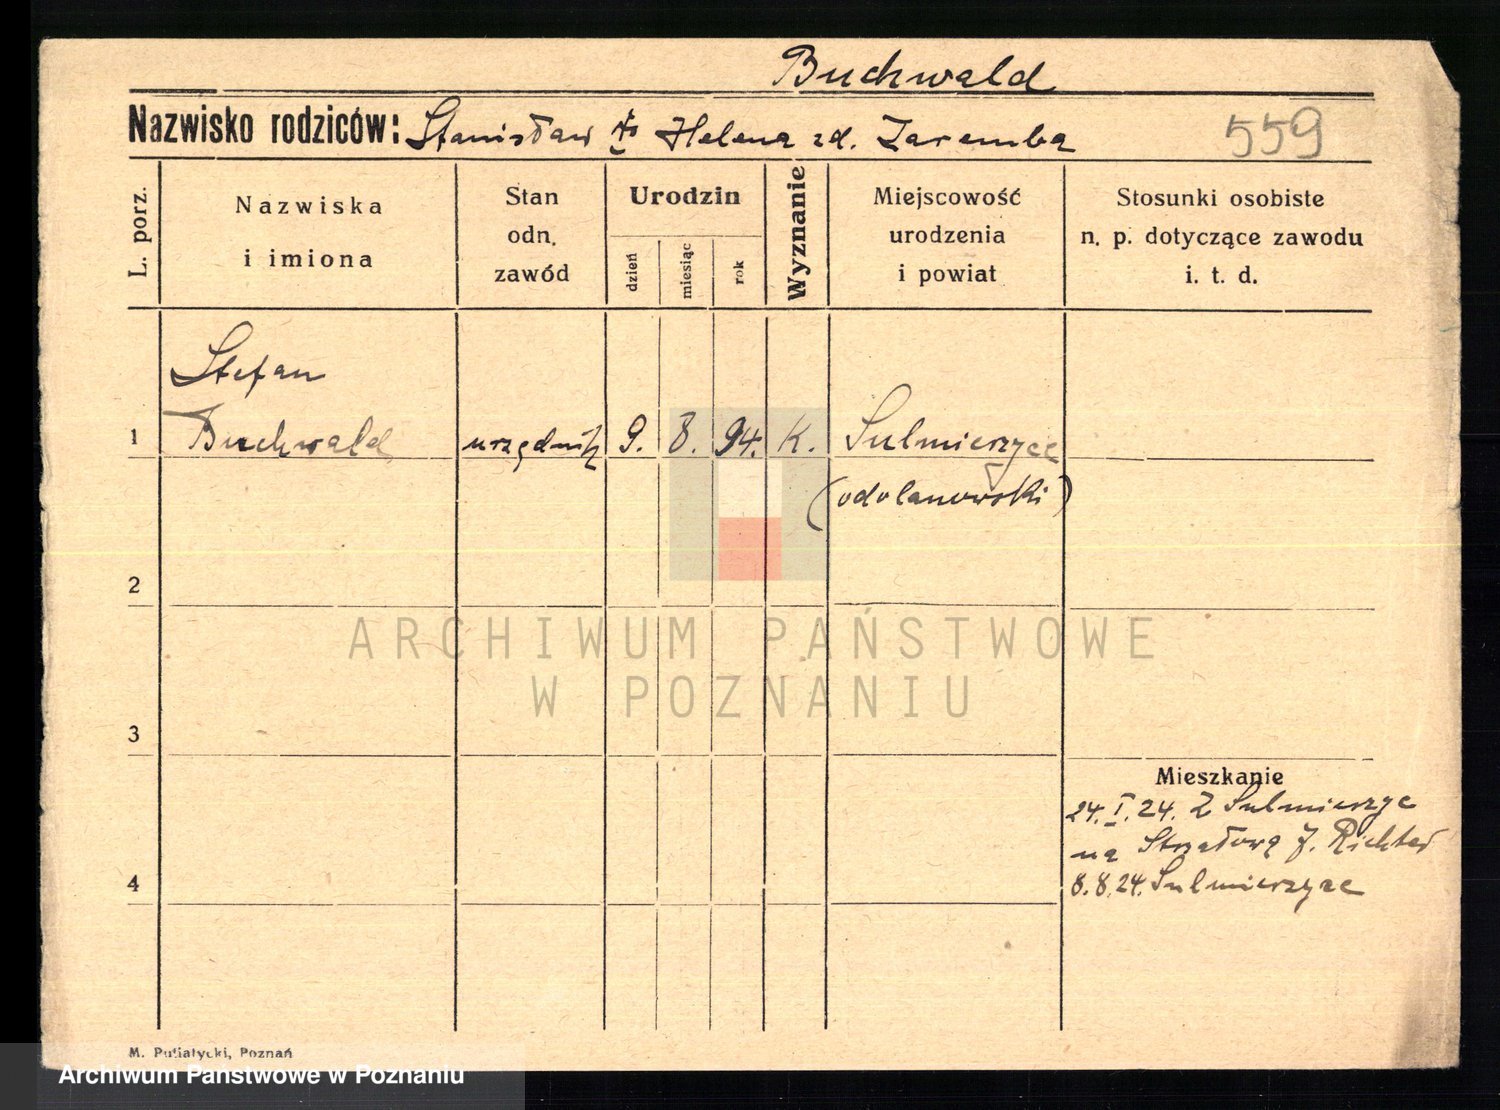 Buchwald
Nazwisko rodziców: Stanisław Helena zd. Zaremba
559
L. porz.
Nazwiska
i imiona
Stan
odn.
zawód
Urodzin
dzień
miesiąc
rok
Wyznanie
Miejscowość
urodzenia
i powiat
Stosunki osobiste
n. p. dotyczące zawodu
i. t. d.
Stefan
1 Buchwald urzędnik 9. 8. 94. K. Sulmierzyce
(odolanowski)
2
3
4
ARCHIWUM PAŃSTWOWE
W POZNANIU
Mieszkanie
24. I. 24. Z Sulmierzyc
na Strzałową 7. Richter
8.8.24. Sulmierzyce
M. Putiatycki, Poznań
Archiwum Państwowe w Poznaniu